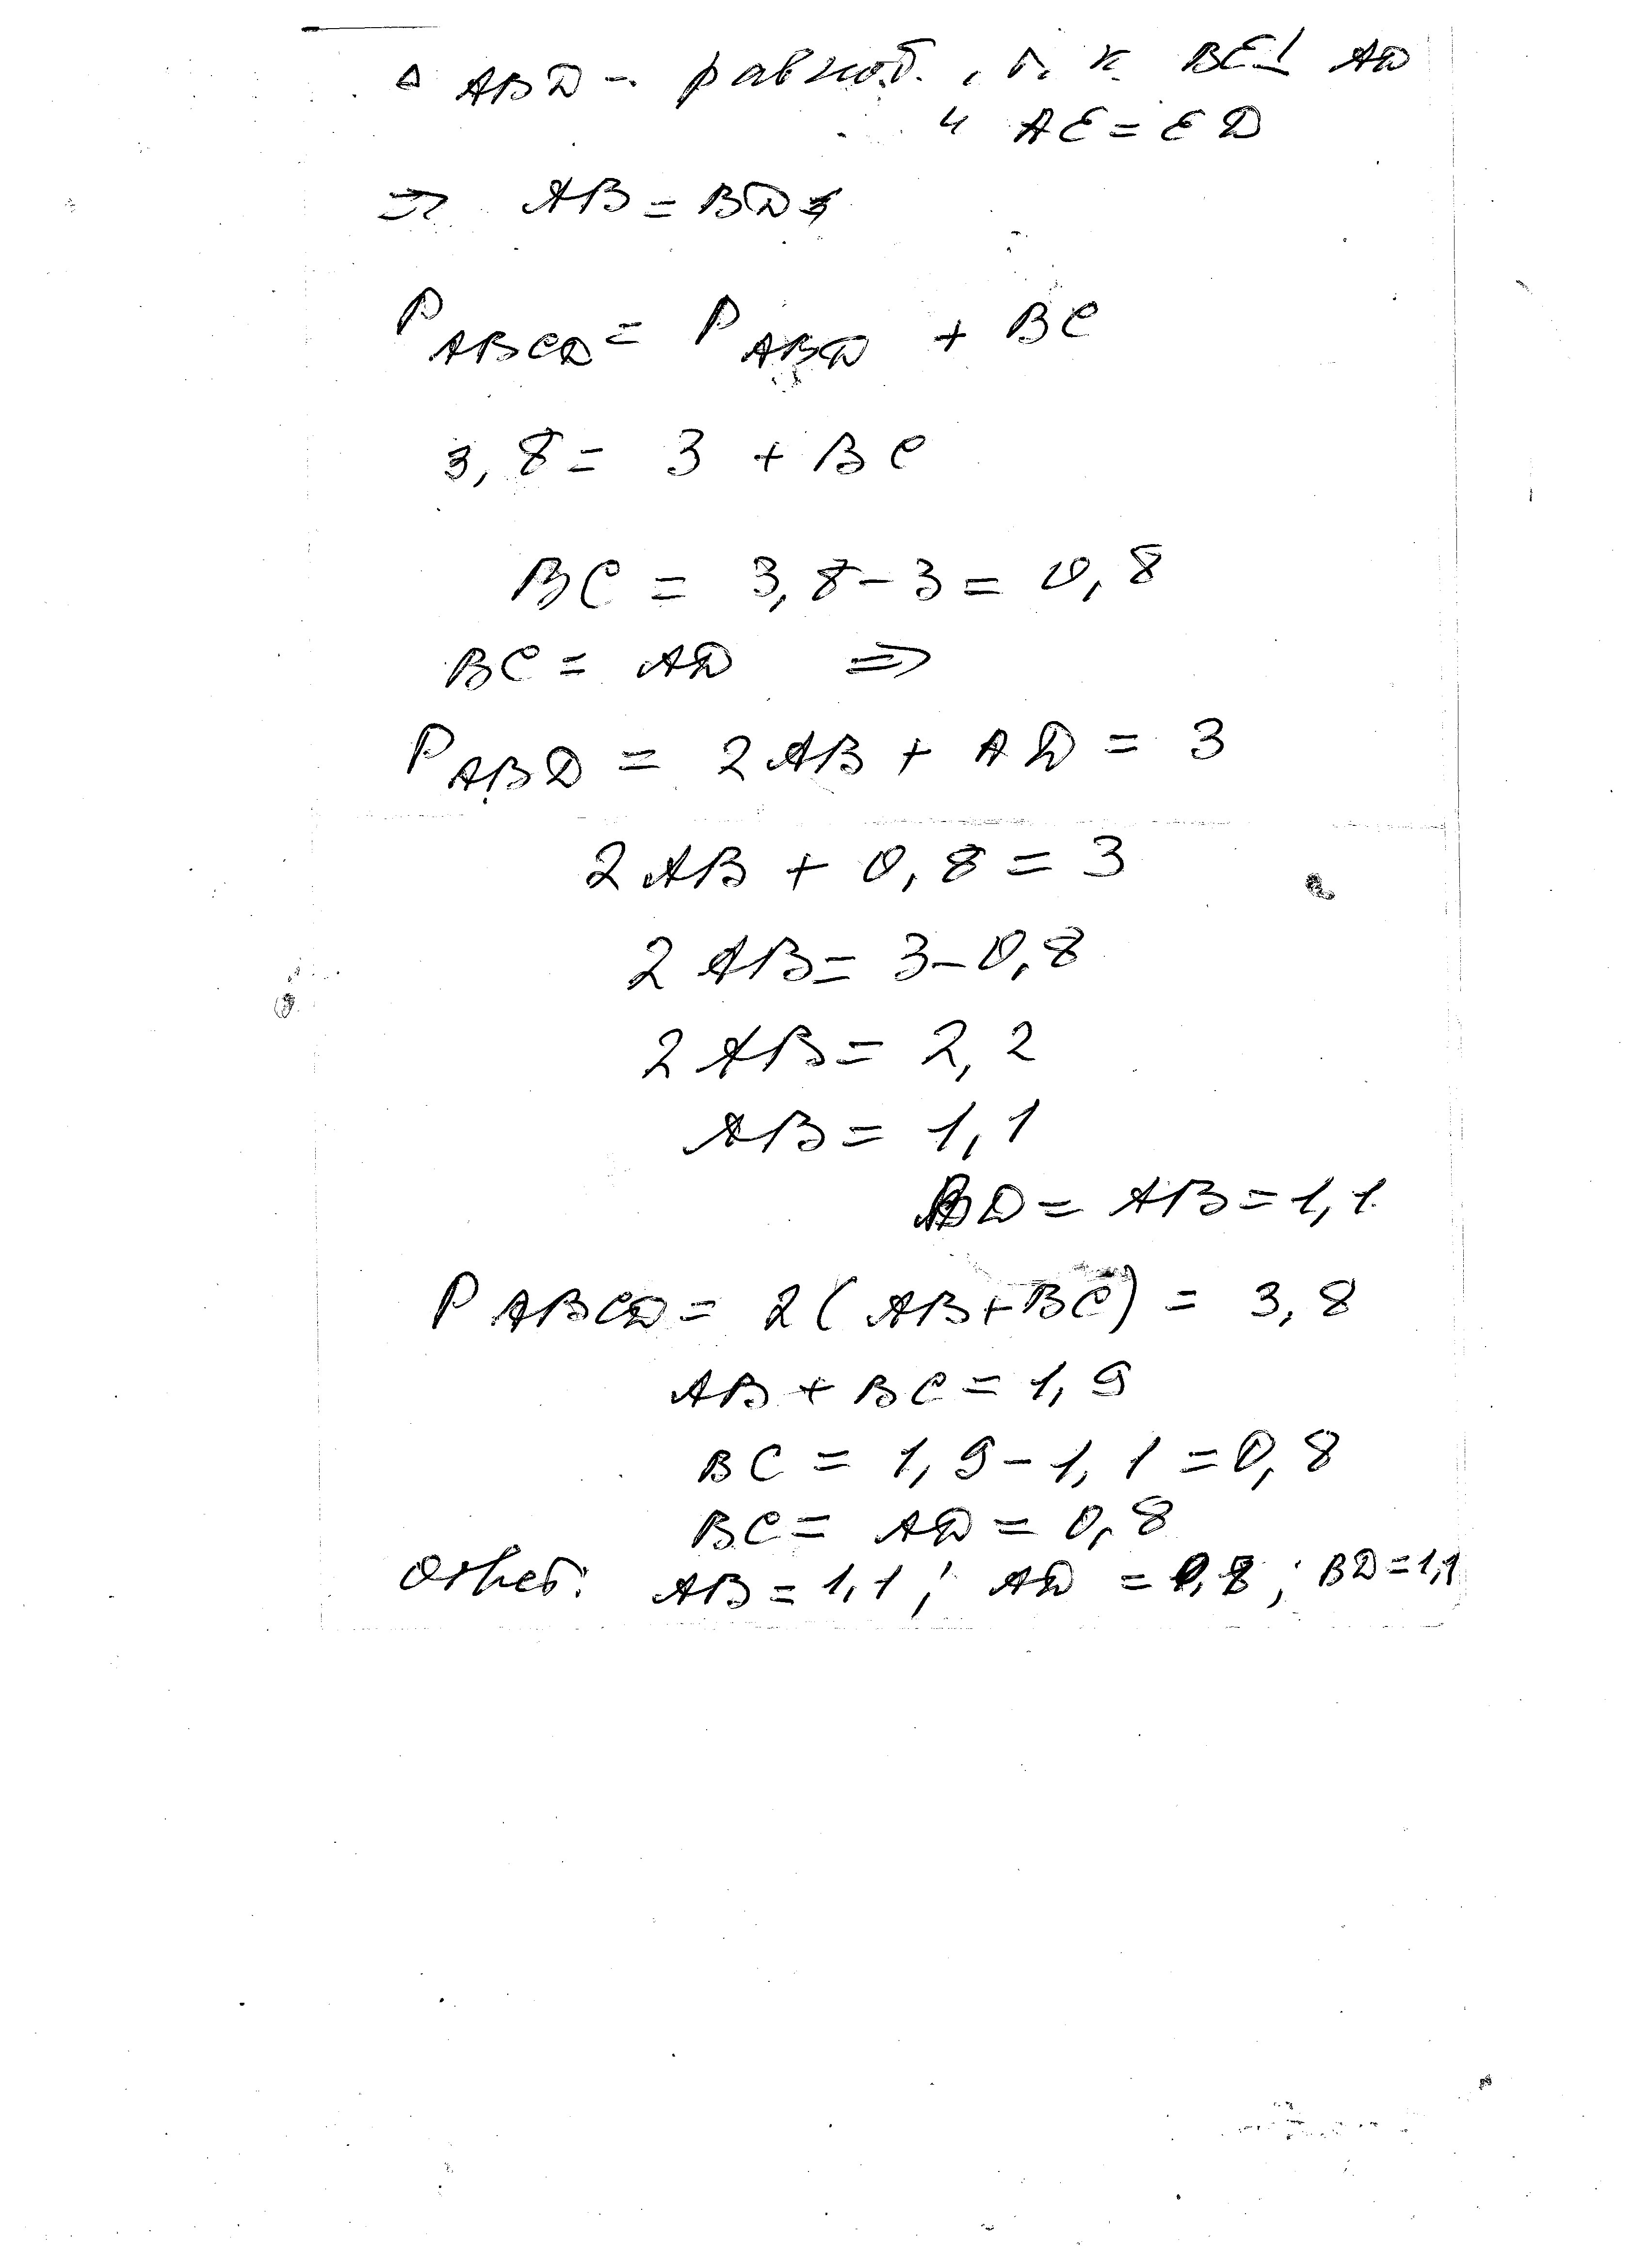 △ ABD – равноб., т. к. BE⊥ AD
и AE = ED
⇒ AB = BD
P ABCD = P ABD + BC
3,8 = 3 + BC
BC = 3,8 – 3 = 0,8
BC = AD ⇒
P ABD = 2AB + AD = 3
2AB + 0,8 = 3
2AB = 3 – 0,8
2AB = 2,2
AB = 1,1
BD = AB = 1,1
P ABCD = 2(AB+BC) = 3,8
AB + BC = 1,9
BC = 1,9 – 1,1 = 0,8
BC = AD = 0,8
Ответ: AB = 1,1; AD = 0,8; BD = 1,1